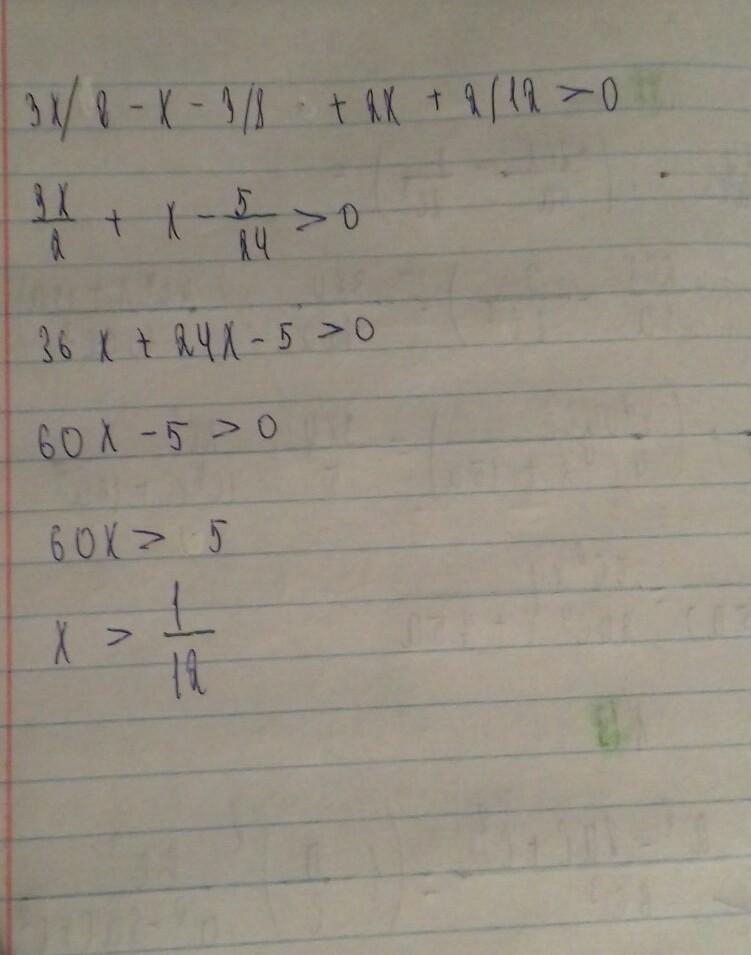 3x/2 - x - 3/8 + 2x + 2/12 > 0
3x/2 + x - 5/24 > 0
36x + 24x - 5 > 0
60x - 5 > 0
60x > 5
x > 1/12